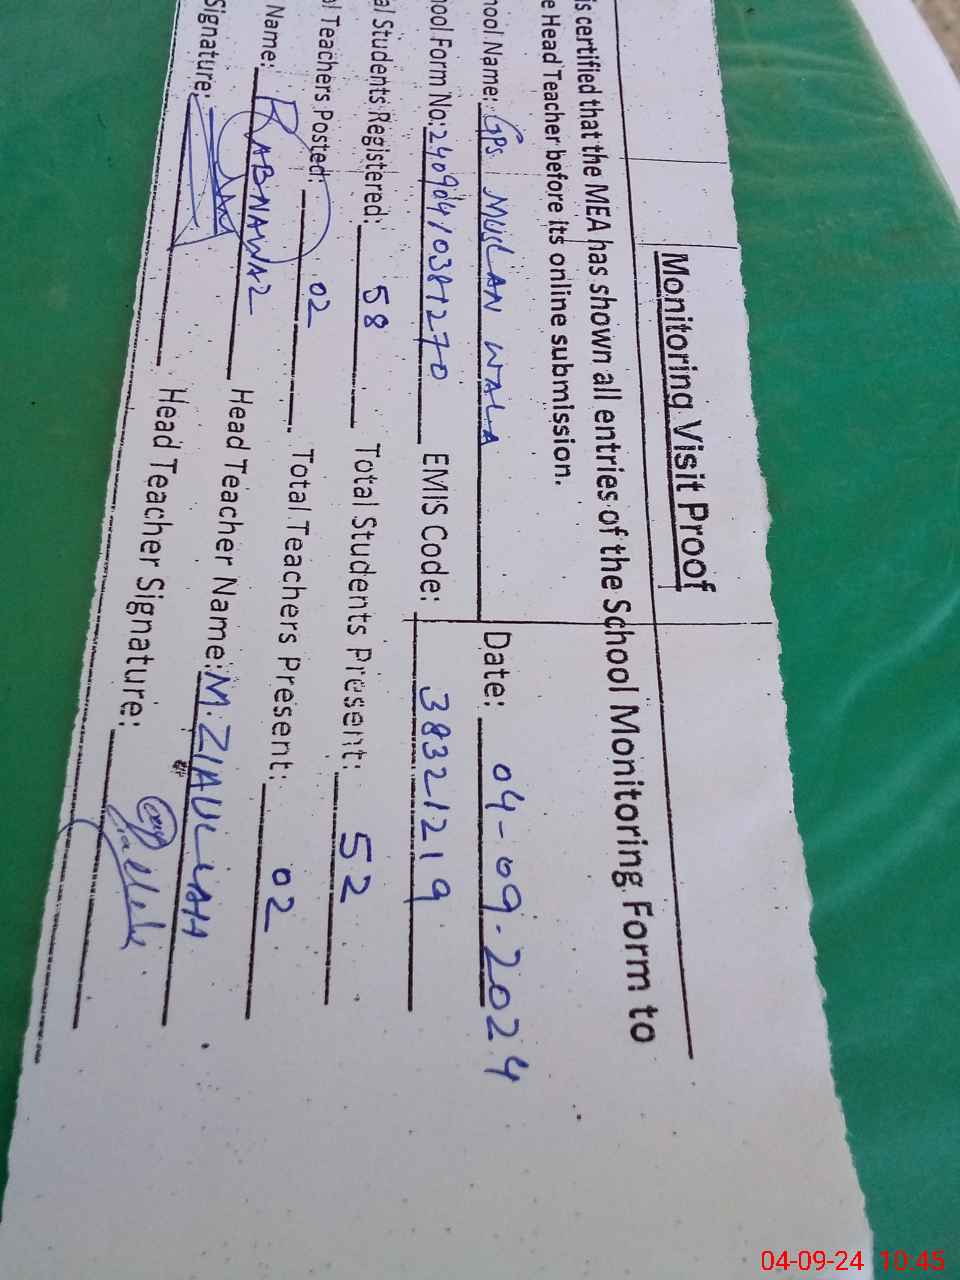 Monitoring Visit Proof
is certified that the MEA has shown all entries of the School Monitoring Form to
e Head Teacher before its online submission.
ool Name: GPS MUSLAN WALA Date: 04-09-2024
ool Form No: 24090410381270 EMIS Code: 38321219
al Students Registered: 58 Total Students Present: 52
al Teachers Posted: 02 Total Teachers Present: 02
Name: RABNAWAZ Head Teacher Name: M. ZIAULLAH
Signature: Head Teacher Signature:
04-09-24 10:45